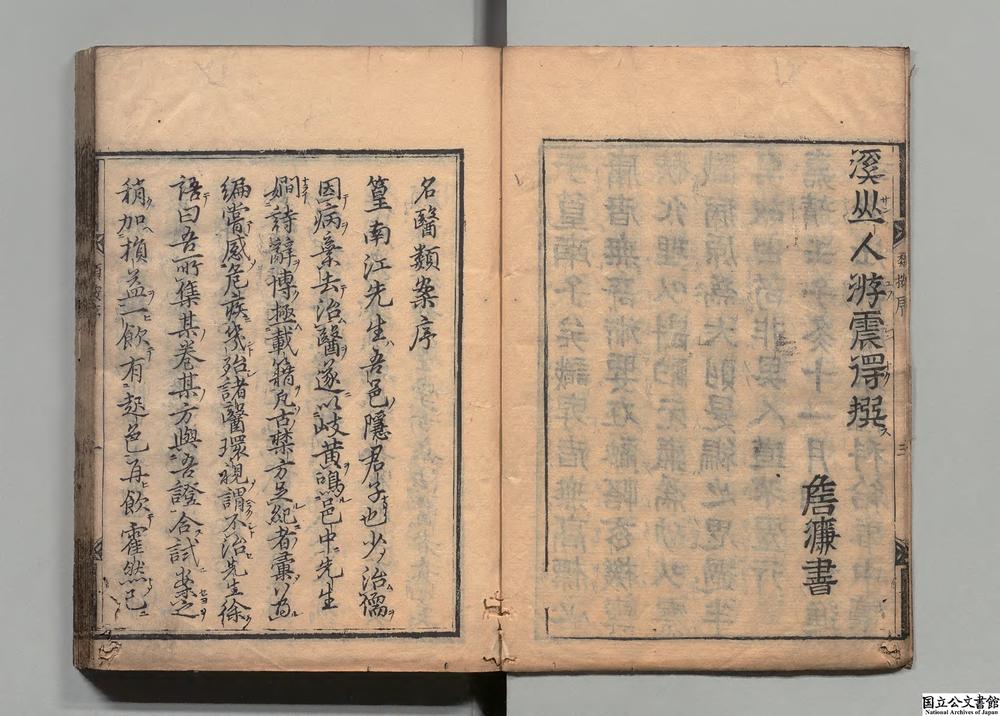 溪山人游震得撰
詹濂書
名醫類案序
篁南江先生吾邑隱君子也少治儒
因病棄去治醫遂以岐黃鳴邑中先生
嫺詩辭博極載籍凡古禁方足紀者彙為
編嘗感危疾幾殆諸醫環視謂不治先生徐
語曰吾所集某卷某方與吾證合試案之
稍加損益一飲有起色再飲霍然已
国立公文書館
National Archives of Japan